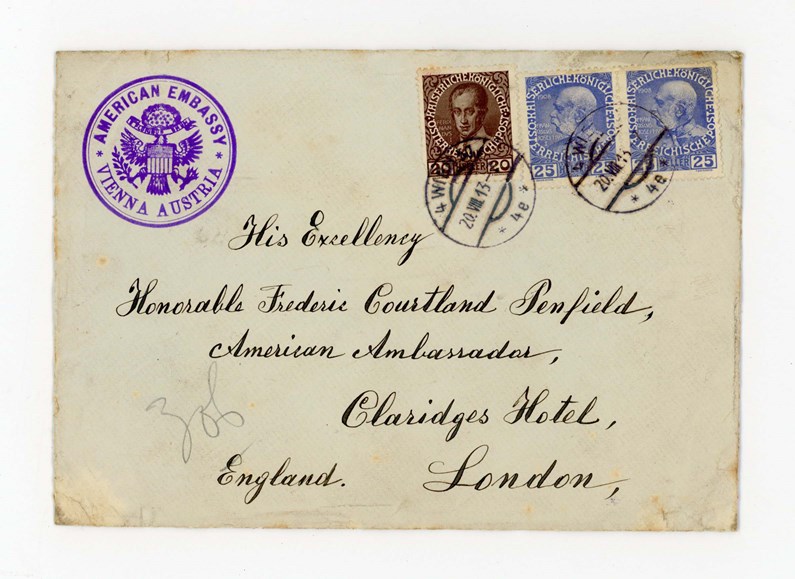 AMERICAN EMBASSY
* VIENNA AUSTRIA *
KAISERLICHE KÖNIGLICHE
20 HELLER 20
1908
KAISERLICHE KÖNIGLICHE
ÖSTERREICHISCHE
25 25
KAISERLICHE KÖNIGLICHE
ÖSTERREICHISCHE
HELLER 25
4 WIEN
20.VIII.13
* 4e *
4 WIEN
20.VIII.13
* 4e *
His Excellency
Honorable Frederic Courtland Penfield,
American Ambassador,
Claridges Hotel,
England. London,